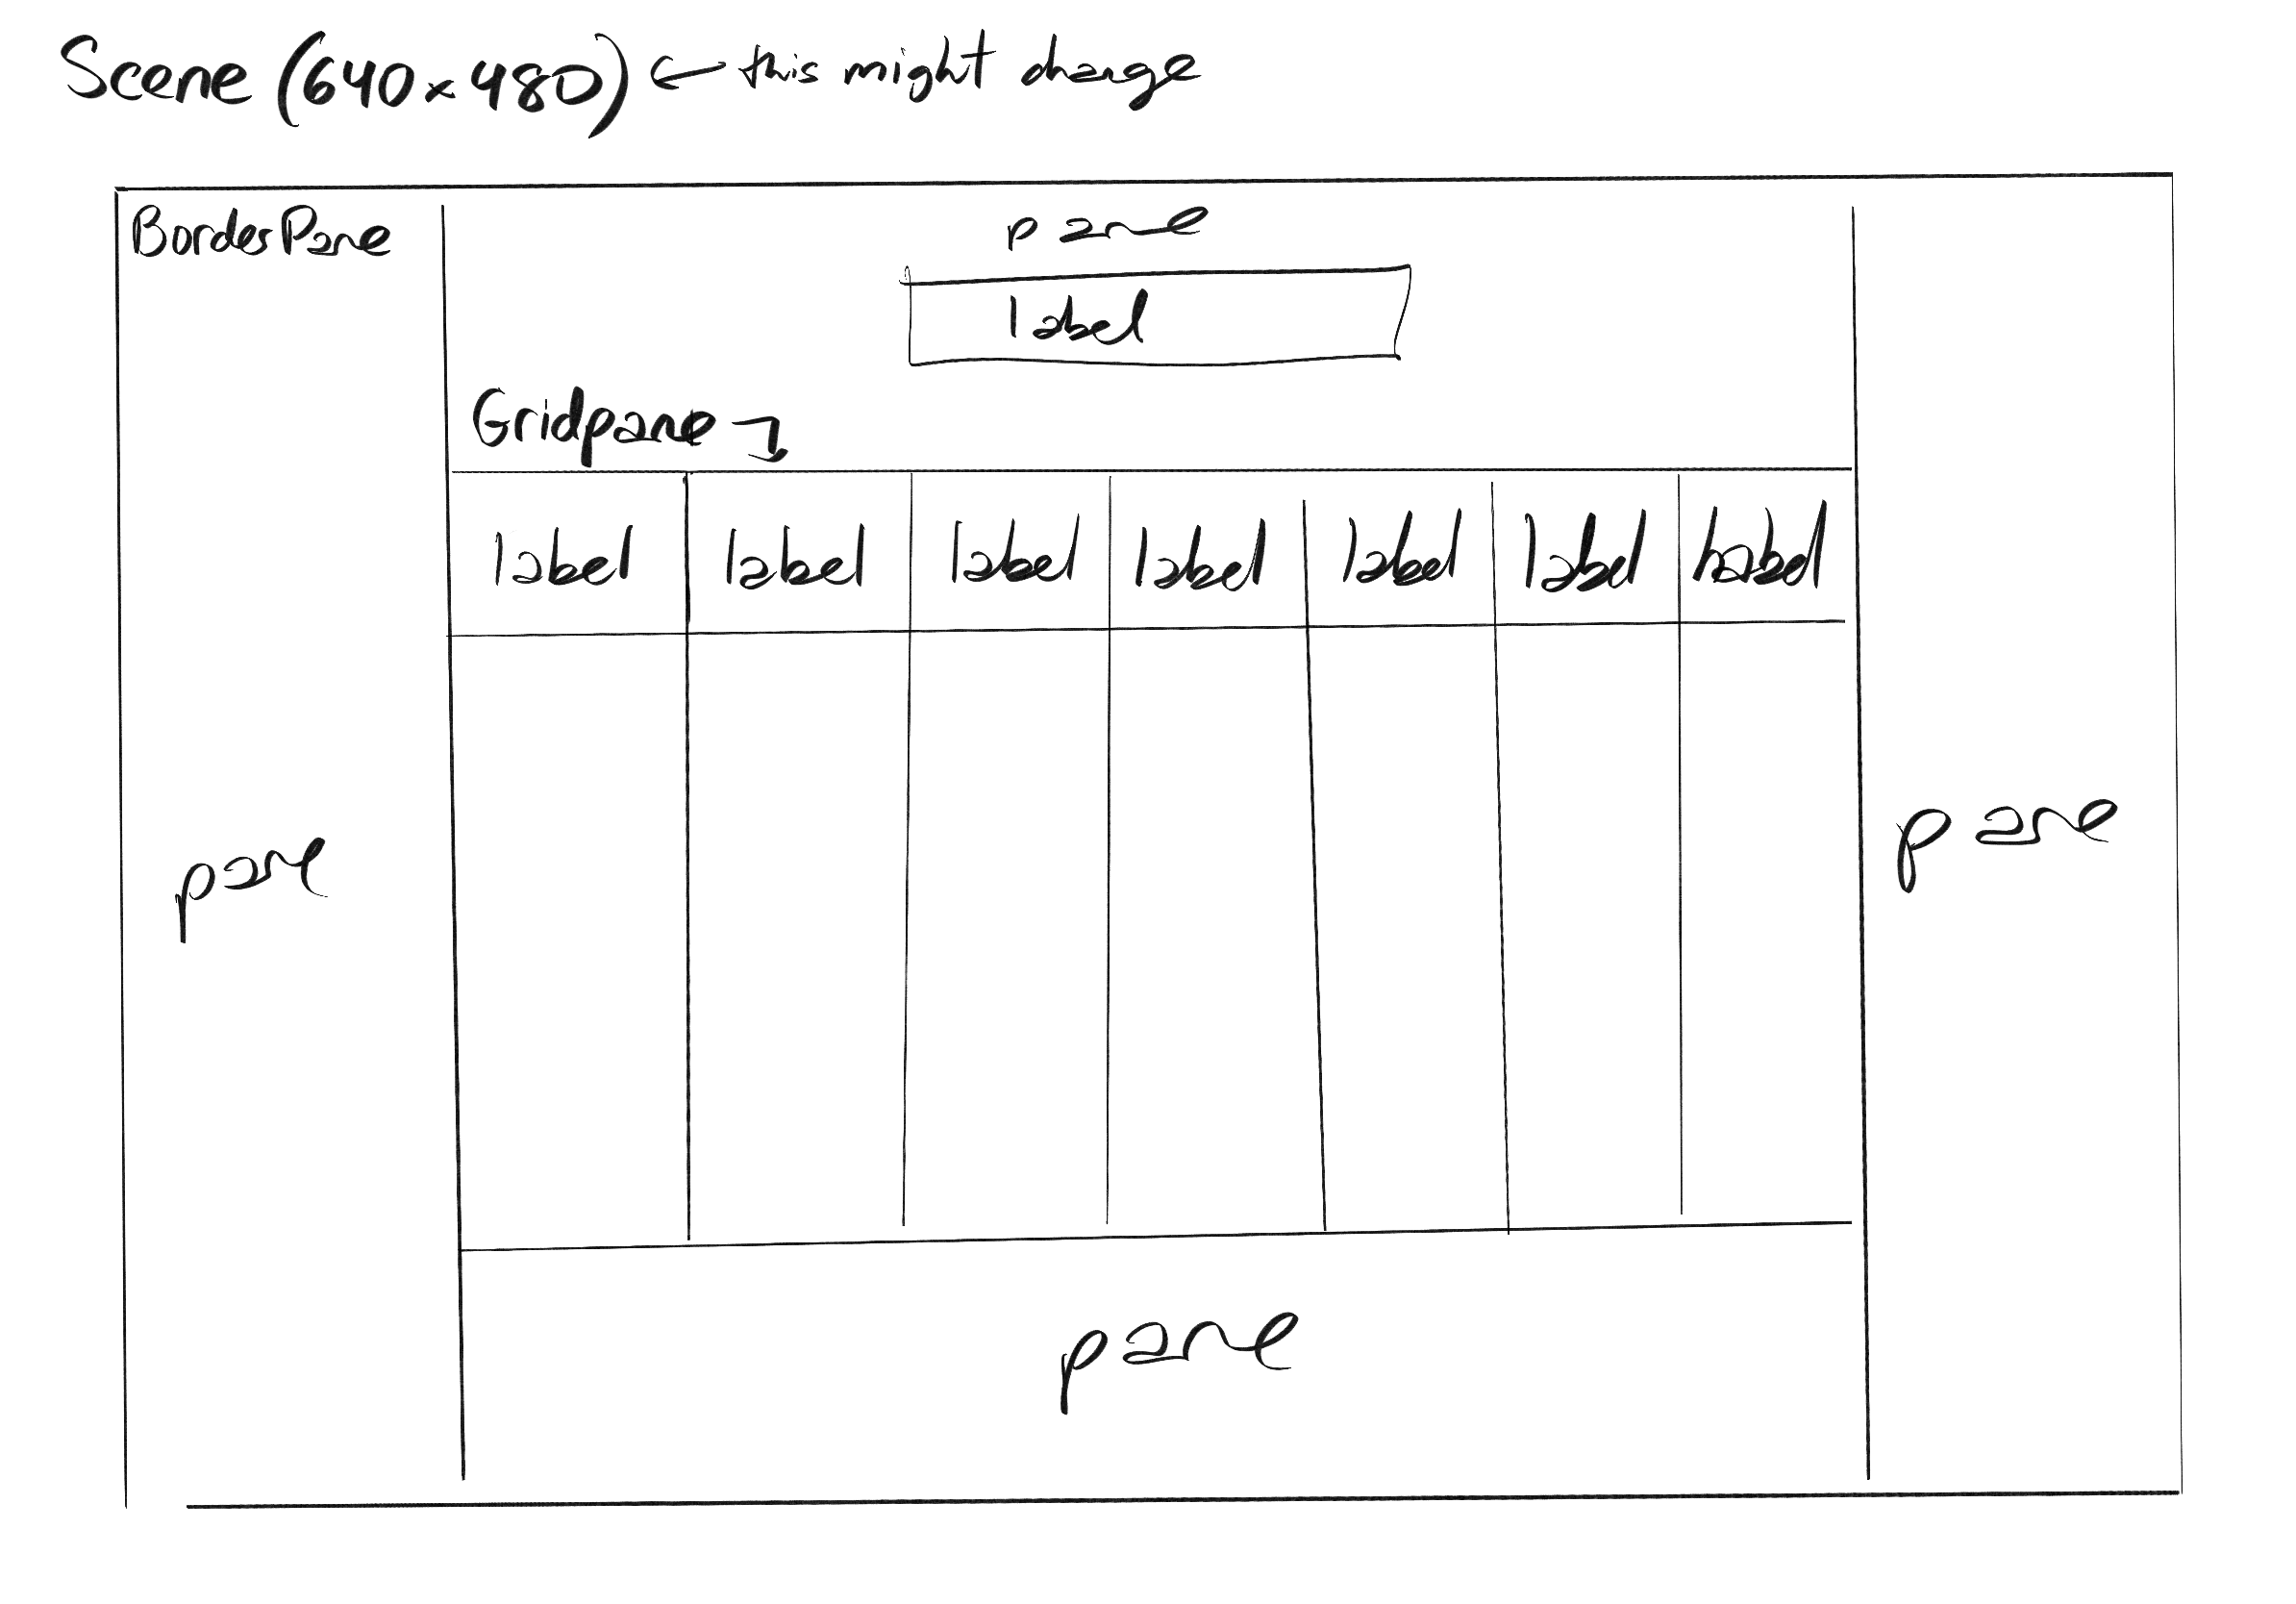 Scene (640x480) ← this might change
BorderPane
pane
label
Gridpane
label label label label label label label
pane
pane
pane